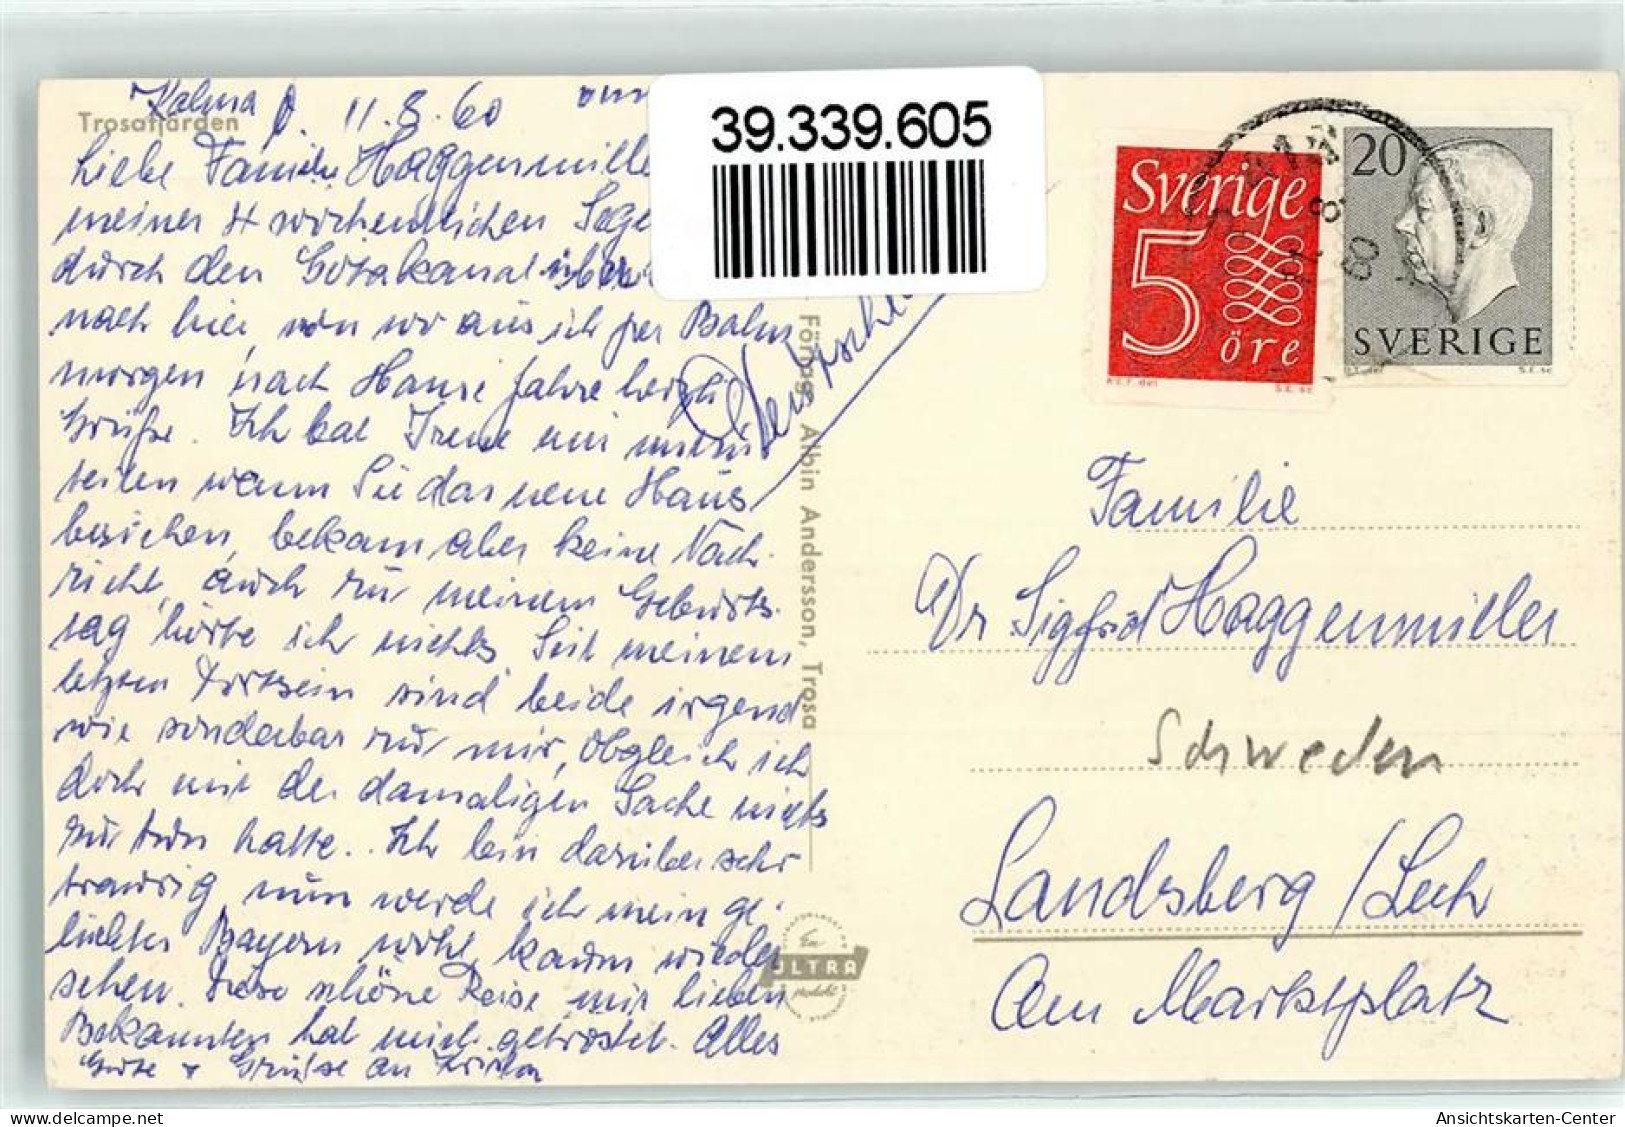 Trosafjärden
11.8.60
Liebe Familie Haggenmiller
meiner 4 wöchentlichen Sege
durch den Götakanal über
nach hier, von wo aus ich per Bahn
morgen nach Hause fahre herzli
Grüße. Ich bat Irene mir mitzu
teilen wann Sie das neue Haus
beziehen, bekam aber keine Nach-
richt, auch zu meinem Geburts-
tag hörte ich nichts. Seit meinem
letzten Dortsein sind beide irgend
wie sonderbar zu mir, obgleich ich
doch mit der damaligen Sache nichts
zu tun hatte. Ich bin darüber sehr
traurig, nun werde ich mein ge-
liebtes Bayern wohl kaum wieder
sehen. Diese schöne Reise mit lieben
Bekannten hat mich getröstet. Alles
Gute + Grüße an
39.339.605
Förlag: Albin Andersson, Trosa
En
ULTRA
produkt
Sverige
5
öre
20
SVERIGE
8
60
Familie
Dr Sigfrid Haggenmiller
Schweden
Landsberg / Lech
Am Marktplatz
Ansichtskarten-Center